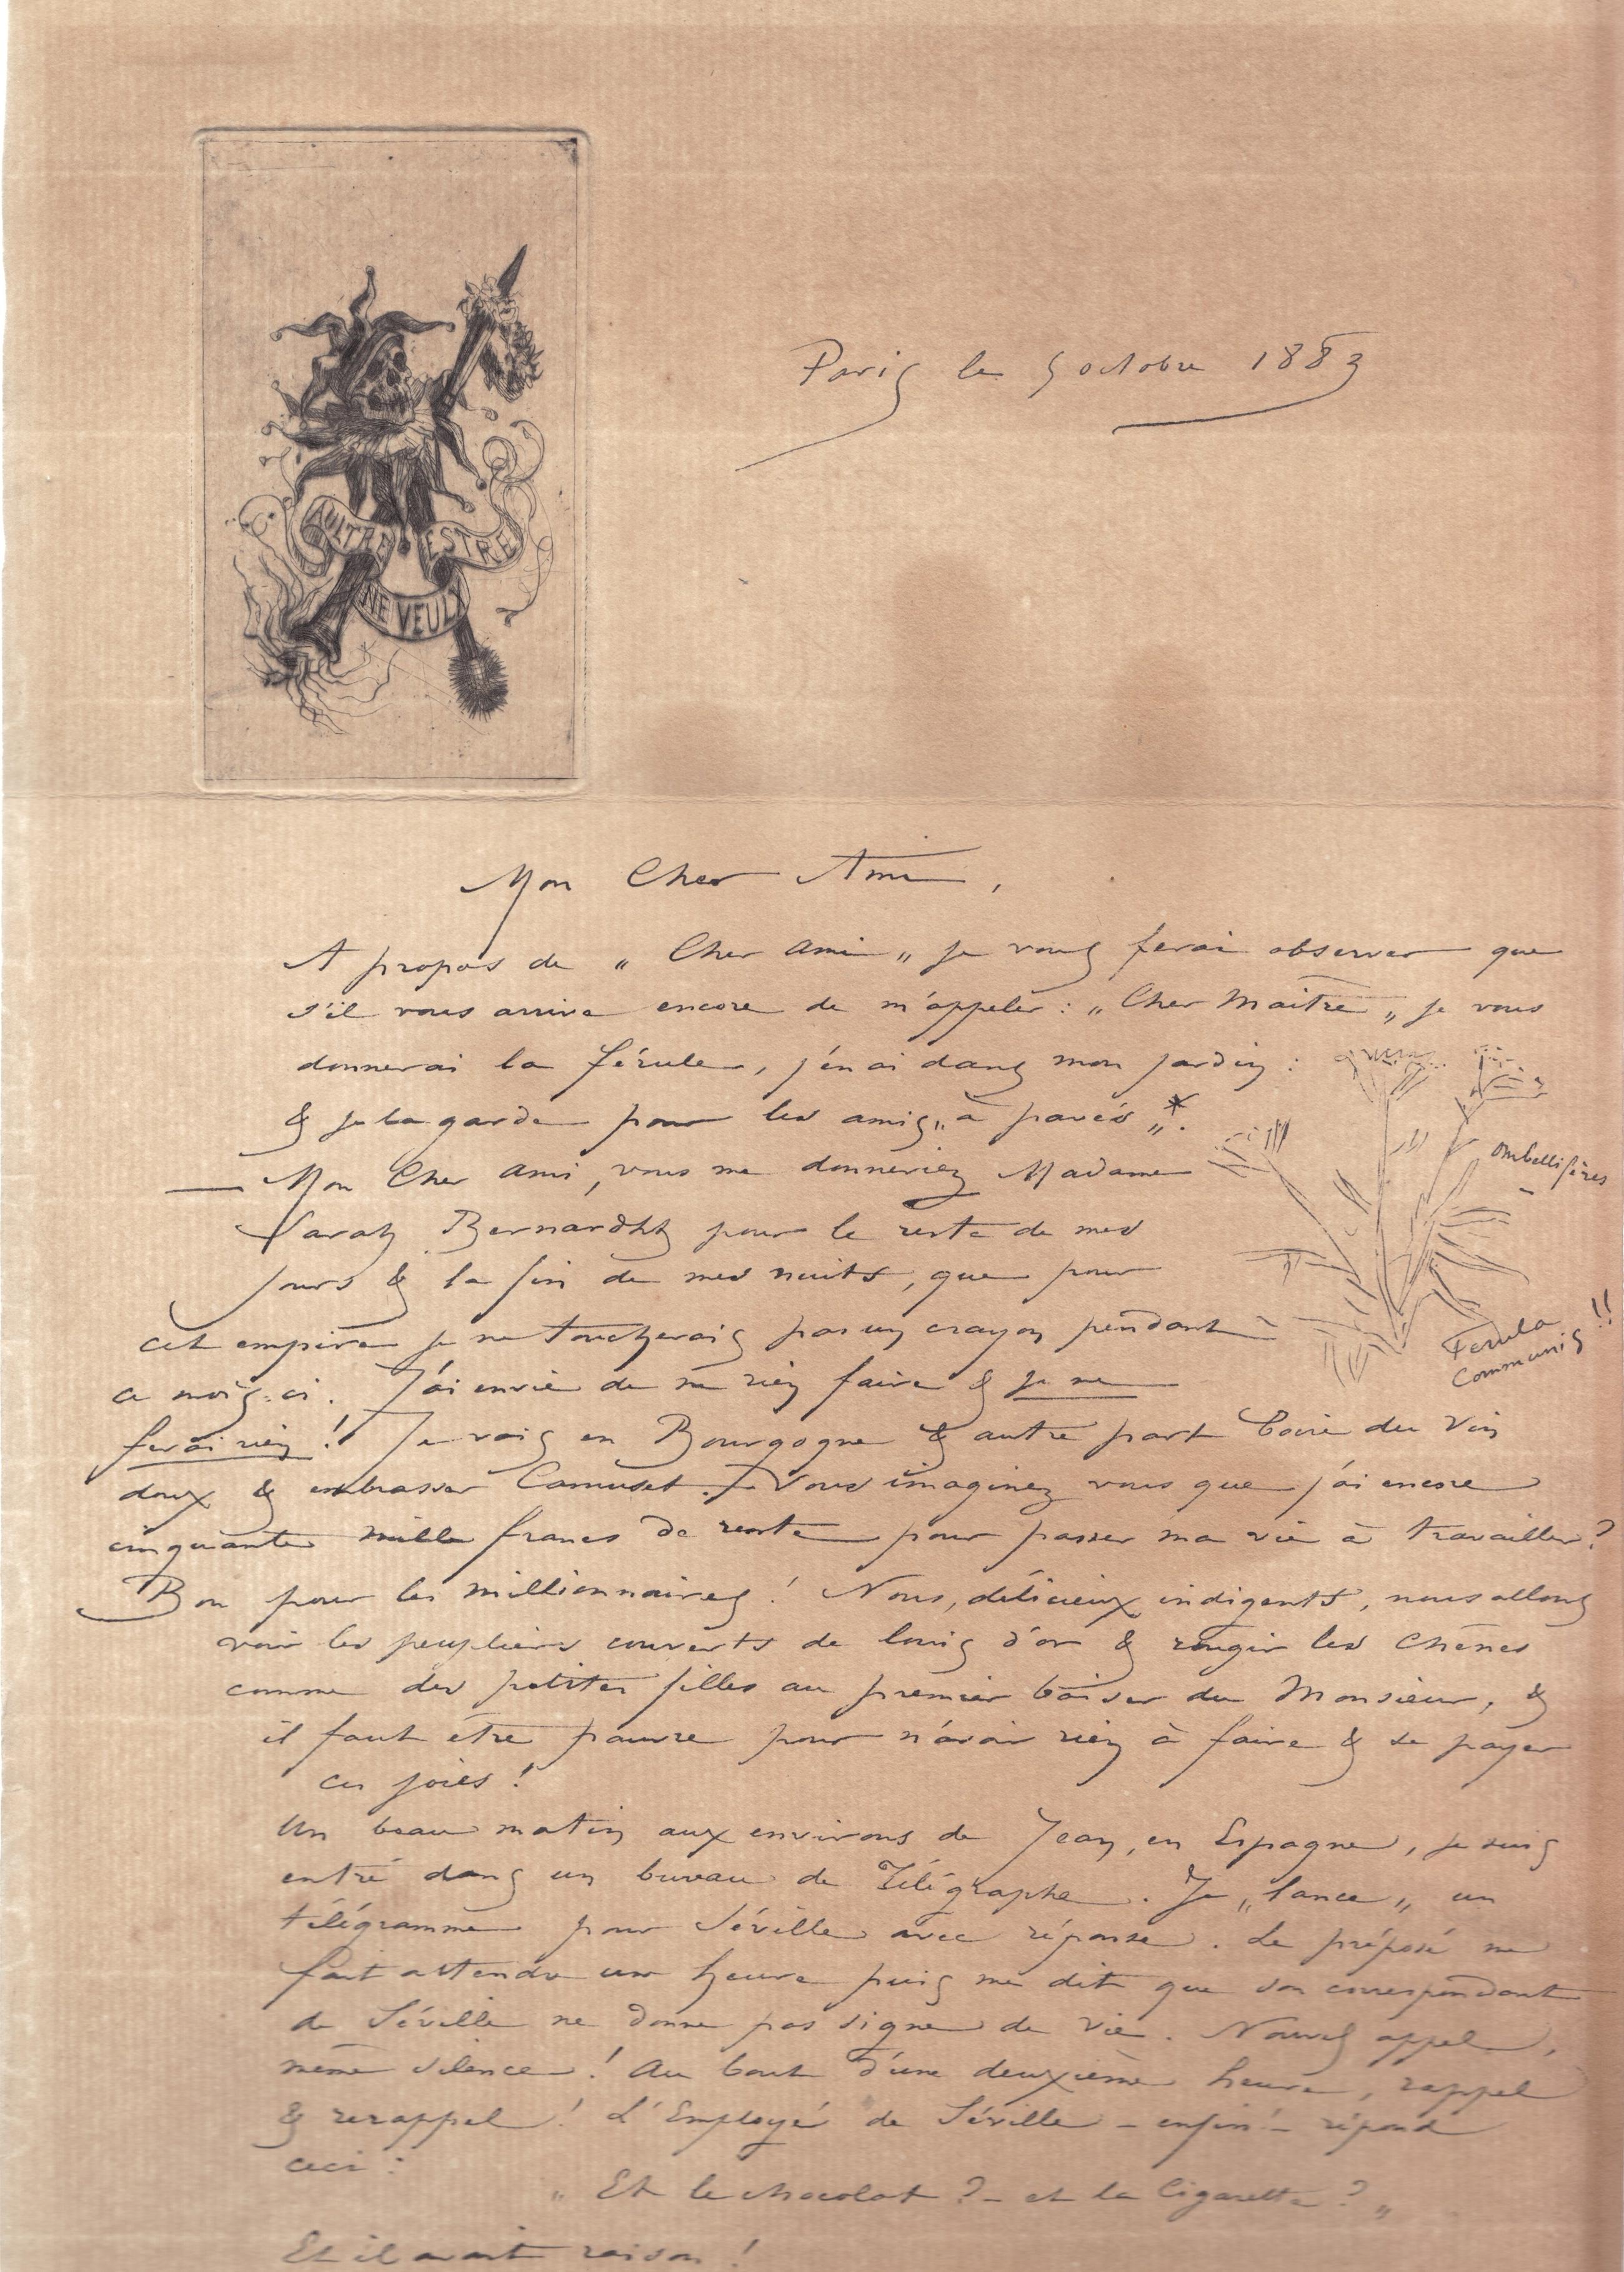 AULTRE
ESTRE
NE VEULX
Paris le 5 octobre 1883
Mon Cher Ami,
A propos de „ Cher ami „ je vous ferai observer que
s'il vous arrive encore de m'appeler : „ Cher Maître „ je vous
donnerai la férule, j'en ai dans mon jardin :
& je la garde pour les amis „ à pavés „ *.
— Mon Cher ami, vous me donneriez Madame
Sarah Bernardht pour le reste de mes
jours & la fin de mes nuits, que pour
cet empire je ne toucherais pas un crayon pendant
ce mois-ci. J'ai envie de ne rien faire & je ne
ferai rien ! Je vais en Bourgogne & autre part boire du vin
doux & embrasser Camuset. – Vous imaginez vous que j'ai encore
cinquante mille francs de rente pour passer ma vie à travailler ?
Bon pour les millionnaires ! Nous, délicieux indigents, nous allons
voir les peupliers couverts de louis d'or & rougir les chênes
comme des petites filles au premier baiser du Monsieur, &
il faut être pauvre pour n'avoir rien à faire & se payer
ces joies !
Un beau matin aux environs de Jean, en Espagne, je suis
entré dans un bureau de Télégraphe. Je „ lance „ un
télégramme pour Séville avec réponse. Le préposé me
fait attendre une heure puis me dit que son correspondant
de Séville ne donne pas signe de vie. Nouvel appel,
même silence ! Au bout d'une deuxième heure, rappel
& rerappel ! L'Employé de Séville – enfin ! – répond
ceci :
„ Et le chocolat ? – et la Cigarette ? „
Et il avait raison !
ombellifères
Ferula
Communis !!